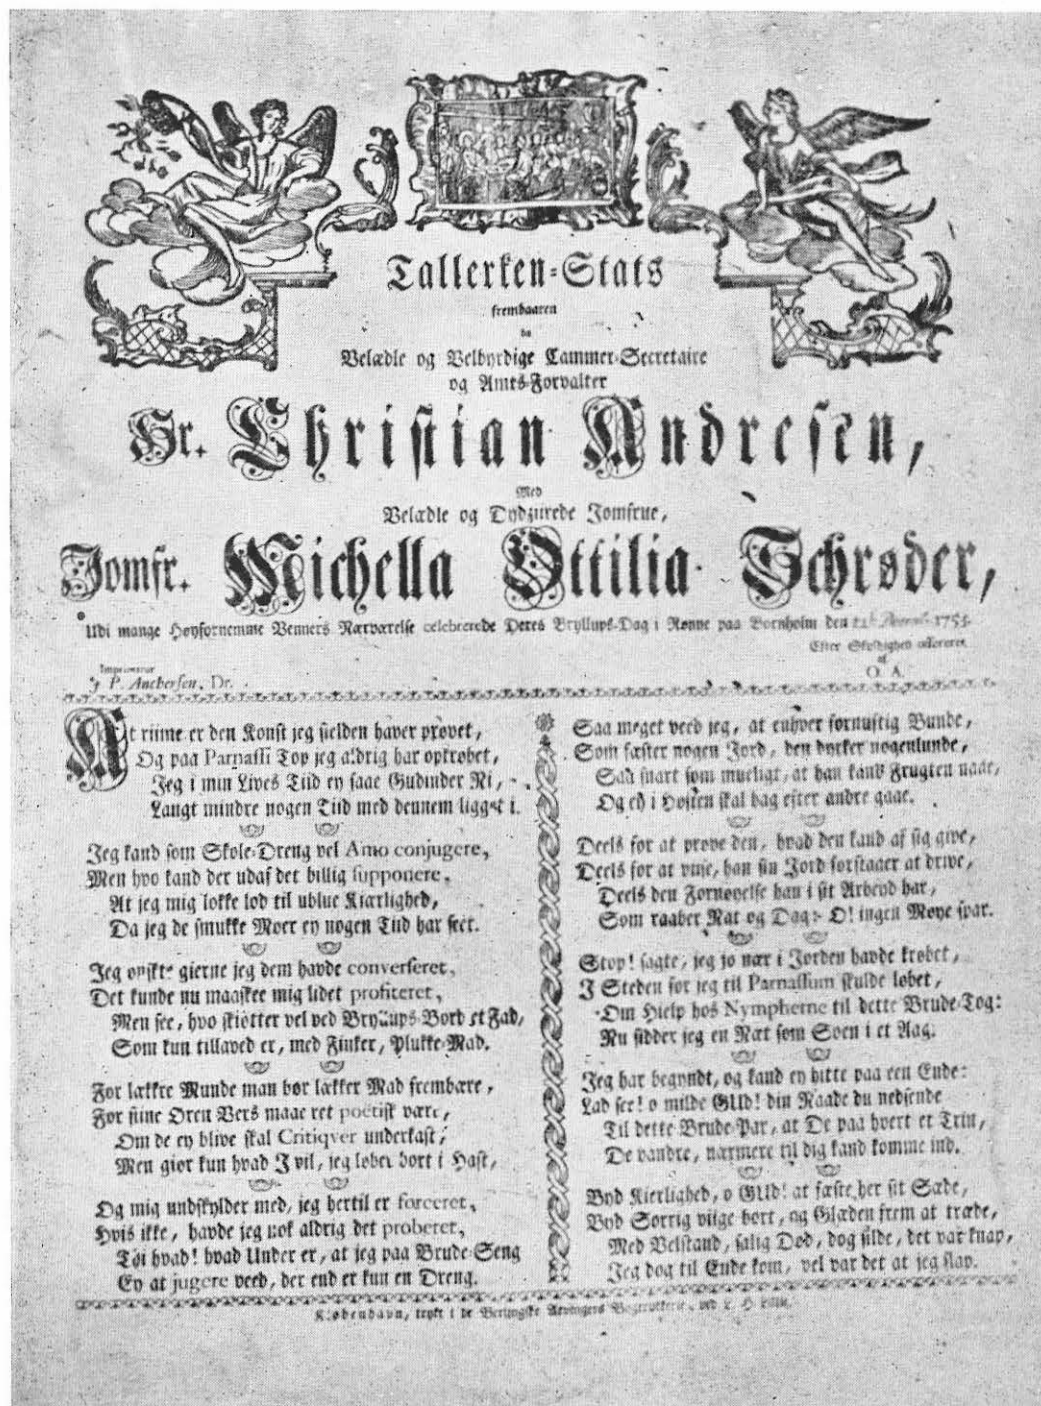 Tallerken-Stats
frembaaren
da
Velædle og Velbyrdige Cammer-Secretaire
og Amts-Forvalter
Hr. Christian Andresen,
Med
Velædle og Dydzirede Jomfrue,
Jomfr. Michella Ottilia Schrøder,
Udi mange Høyfornemme Venners Nærværelse celebrerede Deres Bryllups-Dag i Rønne paa Bornholm den 1753.
Efter Skyldighed
af
O. A.
Imprimatur
P. Anchersen, Dr.
At riime er den Konst jeg sielden haver prøvet,
Og paa Parnassi Top jeg aldrig har optrøbet,
Jeg i min Lives Tiid ey saae Gudinder Ni,
Langt mindre nogen Tiid med dennem ligget i.
Jeg kand som Skole-Dreng vel Amo conjugere,
Men hvo kand der udaf det billig supponere,
At jeg mig lokke lod til ublue Kiærlighed,
Da jeg de smukke Moer ey nogen Tiid har seet.
Jeg ønskte gierne jeg dem havde converseret,
Det kunde nu maaskee mig lidet profiteret,
Men see, hvo skiøtter vel ved Bryllups-Bord et Fad,
Som kun tillaved er, med Finker, Plukke-Mad.
For lækkre Munde man bør lækker Mad frembære,
For fiine Øren Vers maae ret poëtisk være,
Om de ey blive skal Critiqver underkast,
Men giør kun hvad I vil, jeg løber bort i Hast,
Og mig undskylder med, jeg hertil er forceret,
Hvis ikke, havde jeg nok aldrig det proberet,
Toi hvad! hvad Under er, at jeg paa Brude-Seng
Ey at jugere veed, der end er kun en Dreng.
Saa meget veed jeg, at enhver fornuftig Bunde,
Som fæster nogen Jord, den dyrker nogenlunde,
Saa snart som mueligt, at han kand Frugten naae,
Og ey i Høsten skal bag efter andre gaae.
Deels for at prøve den, hvad den kand af sig give,
Deels for at viise, han sin Jord forstaaer at drive,
Deels den Fornøyelse han i sit Arbeyd har,
Som raaber Nat og Dag: O! ingen Møye spar.
Stop! sagte, jeg jo nær i Jorden havde krøbet,
I Steden for jeg til Parnassum skulde løbet,
Om Hielp hos Nympherne til dette Brude-Tog:
Nu sidder jeg en Næt som Soen i et Aag.
Jeg har begyndt, og kand ey hitte paa een Ende:
Lad see! o milde GUd! din Naade du nedsende
Til dette Brude-Par, at De paa hvert et Trin,
De vandre, nærmere til dig kand komme ind.
Byd Kierlighed, o GUd! at fæste her sit Sæde,
Byd Sorrig viige bort, og Glæden frem at træde,
Med Velstand, salig Død, dog silde, det var knap,
Jeg dog til Ende kom, vel var det at jeg slap.
Kiøbenhavn, trykt i de Berlingske Arvingers Bogtrykkerie, ved